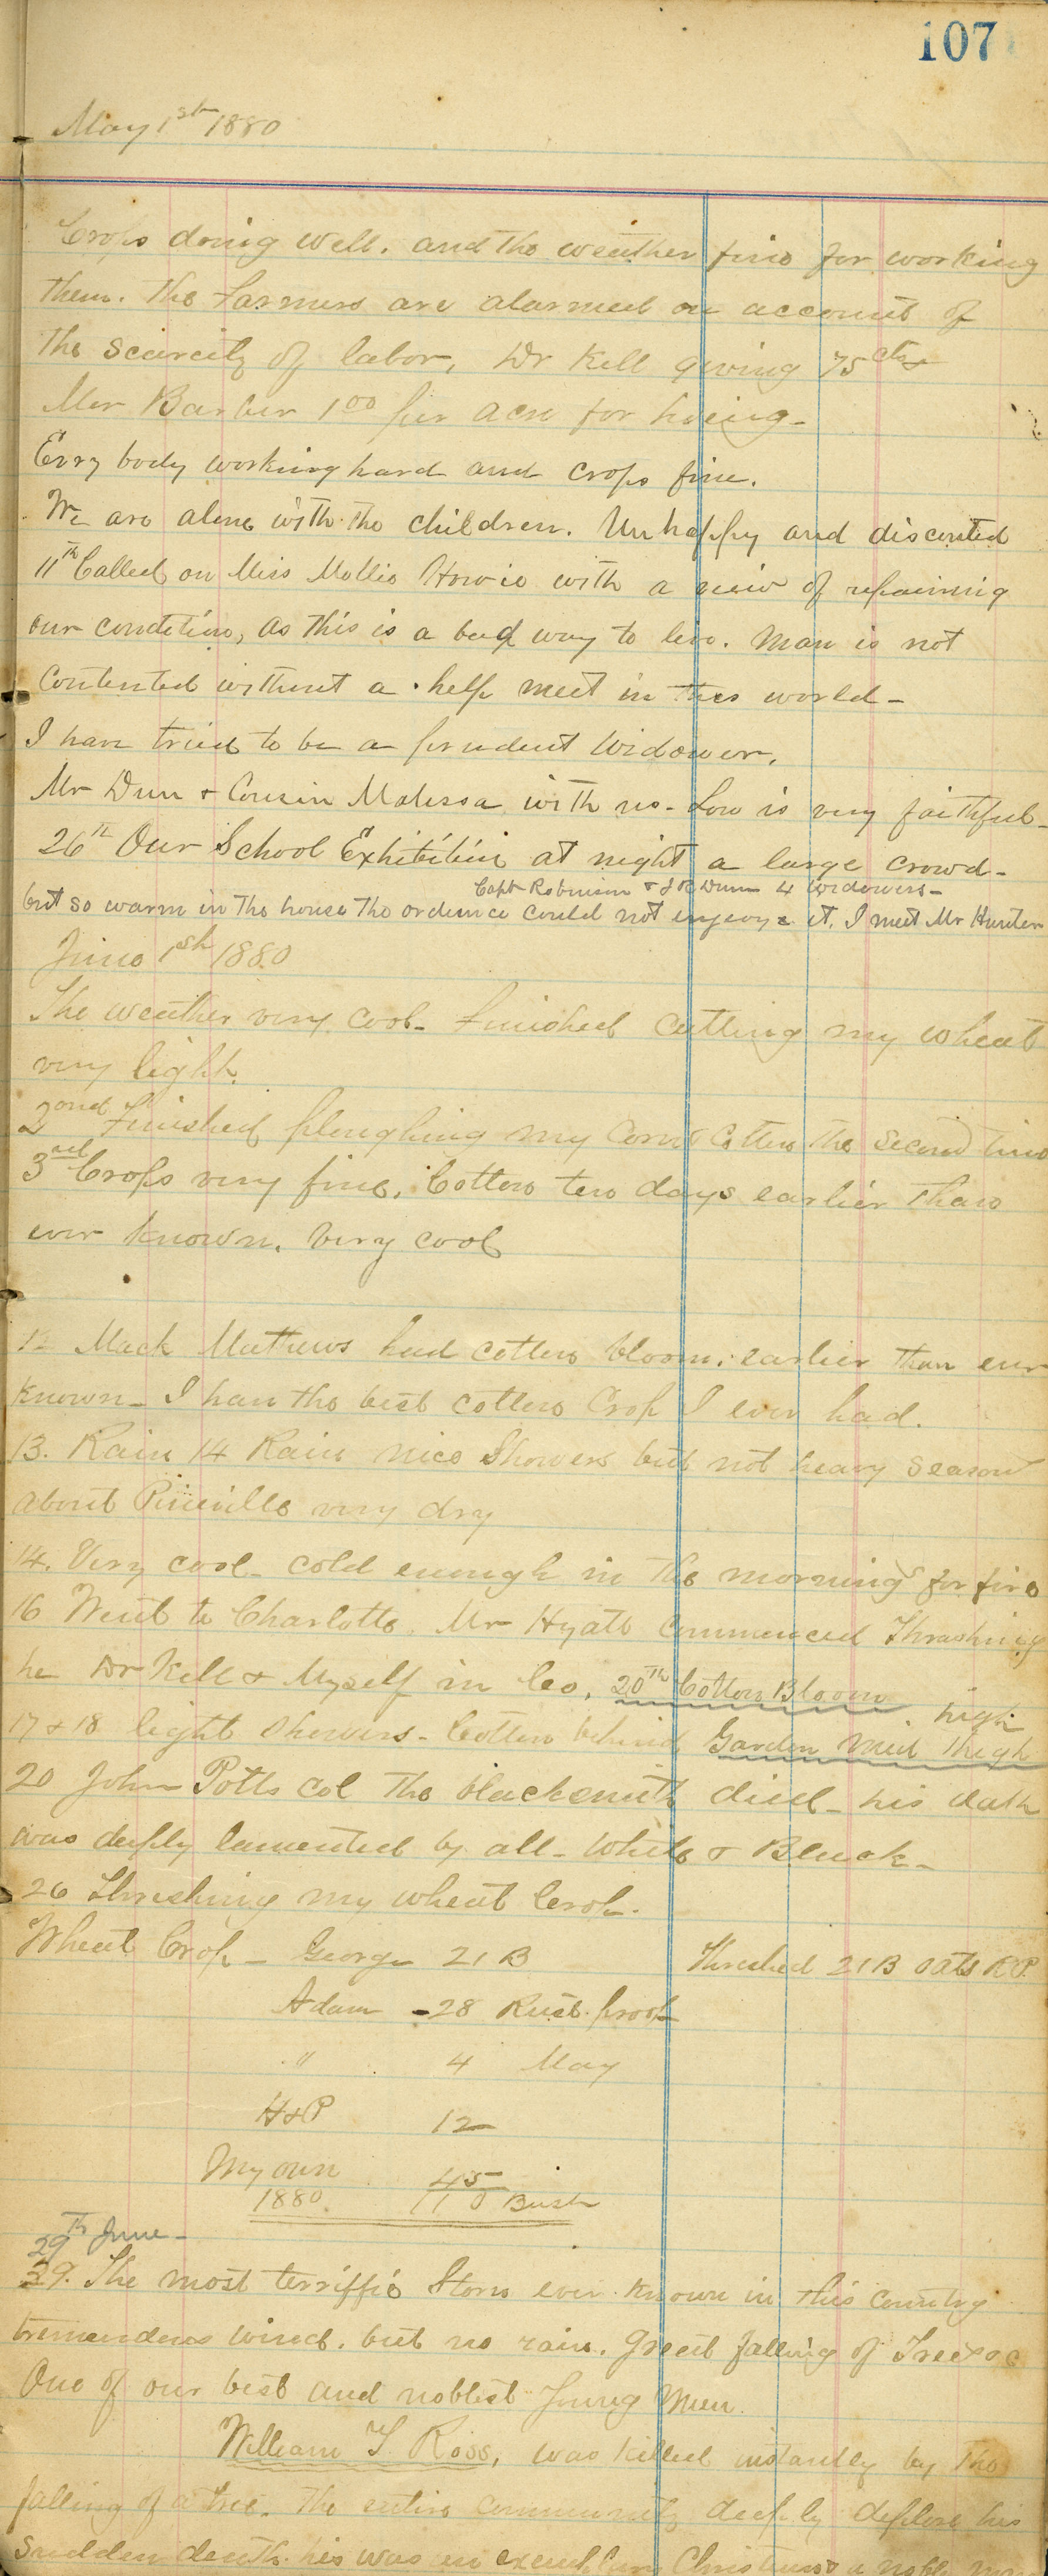 107
May 1st 1880
Crops doing well. and the weather fine for working
them. The Farmers are alarmed on account of
the scarcity of labor, Dr Kell giving 75 cts
Mr Barber 1 00 per acre for hoeing-
Evry body working hard and crops fine.
We are alone with the children. Unhappy and discented
11th Called on Miss Mollie Howie with a view of repairing
our condition, as this is a bad way to live. Man is not
Contented without a help meet in this world-
I have tried to be a prudent Widower.
Mr Dunn & Cousin Malissa with us- Lou is very faithful-
26th Our School Exhibition at night a large crowd-
Capt Robinson & J R Dunn 4 widowers-
but so warm in the house the ordience could not enjoy it. I meet Mr Hunter
June 1st 1880
The weather very cool- Finished cutting my wheat
very light.
2ond Finished ploughing my Corn & Cotton the second time
3rd Crops very fine. Cotton ten days earlier than
ever known. Very cool
12 Mack Mathews had cotton bloom. earlier than ever
known- I have the best cotton Crop I ever had.
13. Rain 14 Rain nice Showers but not heavy season
about Pineville very dry
14. Very cool- cold enough in the morning for fire
16 Went to Charlotte. Mr Hyatt Commenced Thrashing
he Dr Kell & Myself in Co. 20th Cotton Bloom
high
17 & 18 light showers- Cotton behind Garden mid thigh
20 John Potts col the blacksmith died- his death
was deeply lamented by all- White & Black-
26 Threshing my wheat Crop.
Wheat Crop- George 21 B Threshed 21 B oats R.P.
Adam -28 Rust proof
" 4 May
H&P 12
My own 45
1880 110 Bush
29th June-
29. The most terriffic Storm ever known in this Country
tremendous wind. but no rain. great falling of Trees &c
One of our best and noblest Young Men.
William T Ross, was killed instantly by the
falling of a tree. The entire community deeply deplore his
sudden death. his was an exemplary Christian & a noble man